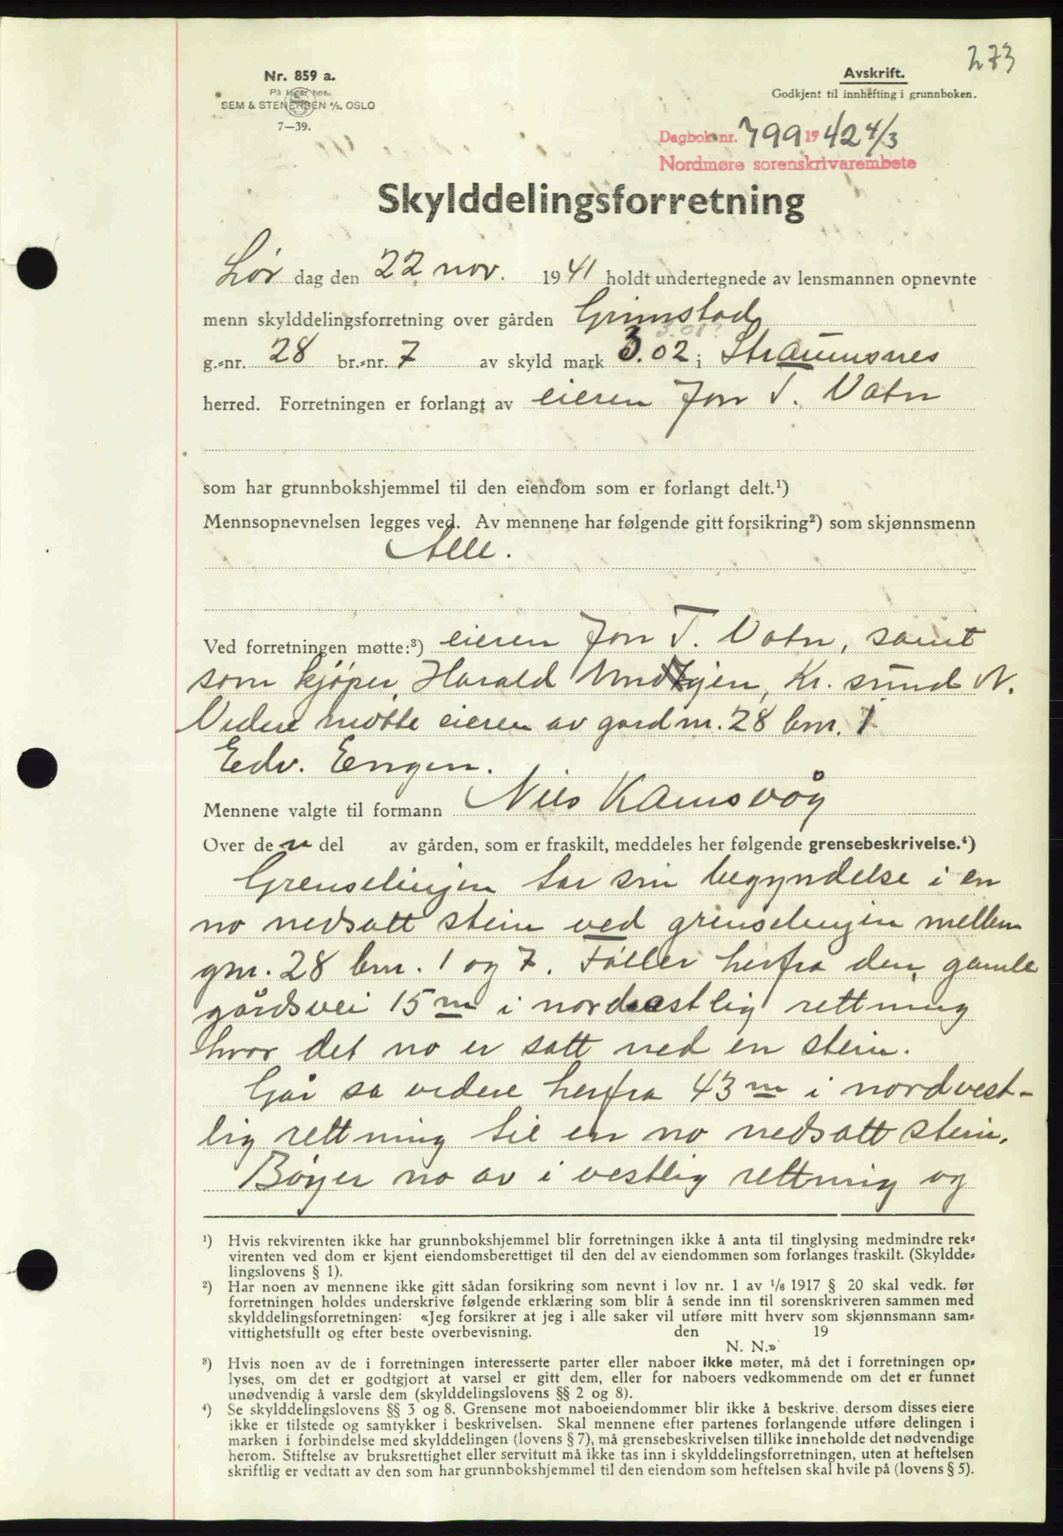 273
Nr. 859 a.
På lager hos.
SEM & STENERSEN A/S, OSLO
7—39.
Avskrift.
Godkjent til innhefting i grunnboken.
Dagbok nr. 799 1942 4/3
Nordmøre sorenskrivarembete
Skylddelingsforretning
Lør dag den 22 nov. 1941 holdt undertegnede av lensmannen opnevnte
menn skylddelingsforretning over gården Grimstad
g.-nr. 28 br.-nr. 7 av skyld mark 3.02 i Straumsnes
herred. Forretningen er forlangt av eieren Jon T. Vatn
som har grunnbokshjemmel til den eiendom som er forlangt delt.¹)
Mennsopnevnelsen legges ved. Av mennene har følgende gitt forsikring²) som skjønnsmenn
Alle.
Ved forretningen møtte:³) eieren Jon T. Vatn, samt
som kjøper, Harald Kr. sund N.
Videre møtte eieren av gard nr. 28 bnr. 1
Edv. Engen.
Mennene valgte til formann Nils Kamsvåg
Over den del av gården, som er fraskilt, meddeles her følgende grensebeskrivelse.⁴)
Grenselinjen tar sin begyndelse i en
no nedsatt stein ved grenselinjen mellem
gnr. 28 bnr. 1 og 7. Føller herfra den gamle
gårdsvei 15 m i nordvestlig rettning
hvor det no er satt ned en stein.
Går sa videre herfra 43 m i nordvest-
lig rettning til en no nedsatt stein.
Bøyer no av i vestlig rettning og
¹) Hvis rekvirenten ikke har grunnbokshjemmel blir forretningen ikke å anta til tinglysing medmindre rek-
virenten ved dom er kjent eiendomsberettiget til den del av eiendommen som forlanges fraskilt. (Skyldde-
lingslovens § 1).
²) Har noen av mennene ikke gitt sådan forsikring som nevnt i lov nr. 1 av 1/6 1917 § 20 skal vedk. før
forretningen holdes underskrive følgende erklæring som blir å sende inn til sorenskriveren sammen med
skylddelingsforretningen: «Jeg forsikrer at jeg i alle saker vil utføre mitt hverv som skjønnsmann sam-
vittighetsfullt og efter beste overbevisning. den 19
N. N.»
³) Hvis noen av de i forretningen interesserte parter eller naboer ikke møter, må det i forretningen op-
lyses, om det er godtgjort at varsel er gitt dem, eller for naboers vedkommende om det er funnet
unødvendig å varsle dem (skylddelingslovens §§ 2 og 8).
⁴) Se skylddelingslovens §§ 3 og 8. Grensene mot naboeiendommer blir ikke å beskrive, dersom disses eiere
ikke er tilstede og samtykker i beskrivelsen. Skal mennene efter partenes forlangende utføre delingen i
marken i forbindelse med skylddelingen (lovens § 7), må grensebeskrivelsen tillike inneholde det nødvendige
herom. Stiftelse av bruksrettighet eller servitutt må ikke tas inn i skylddelingsforretningen, uten at heftelsen
skriftlig er vedtatt av den som har grunnbokshjemmel til den eiendom som heftelsen skal hvile på (lovens § 5).